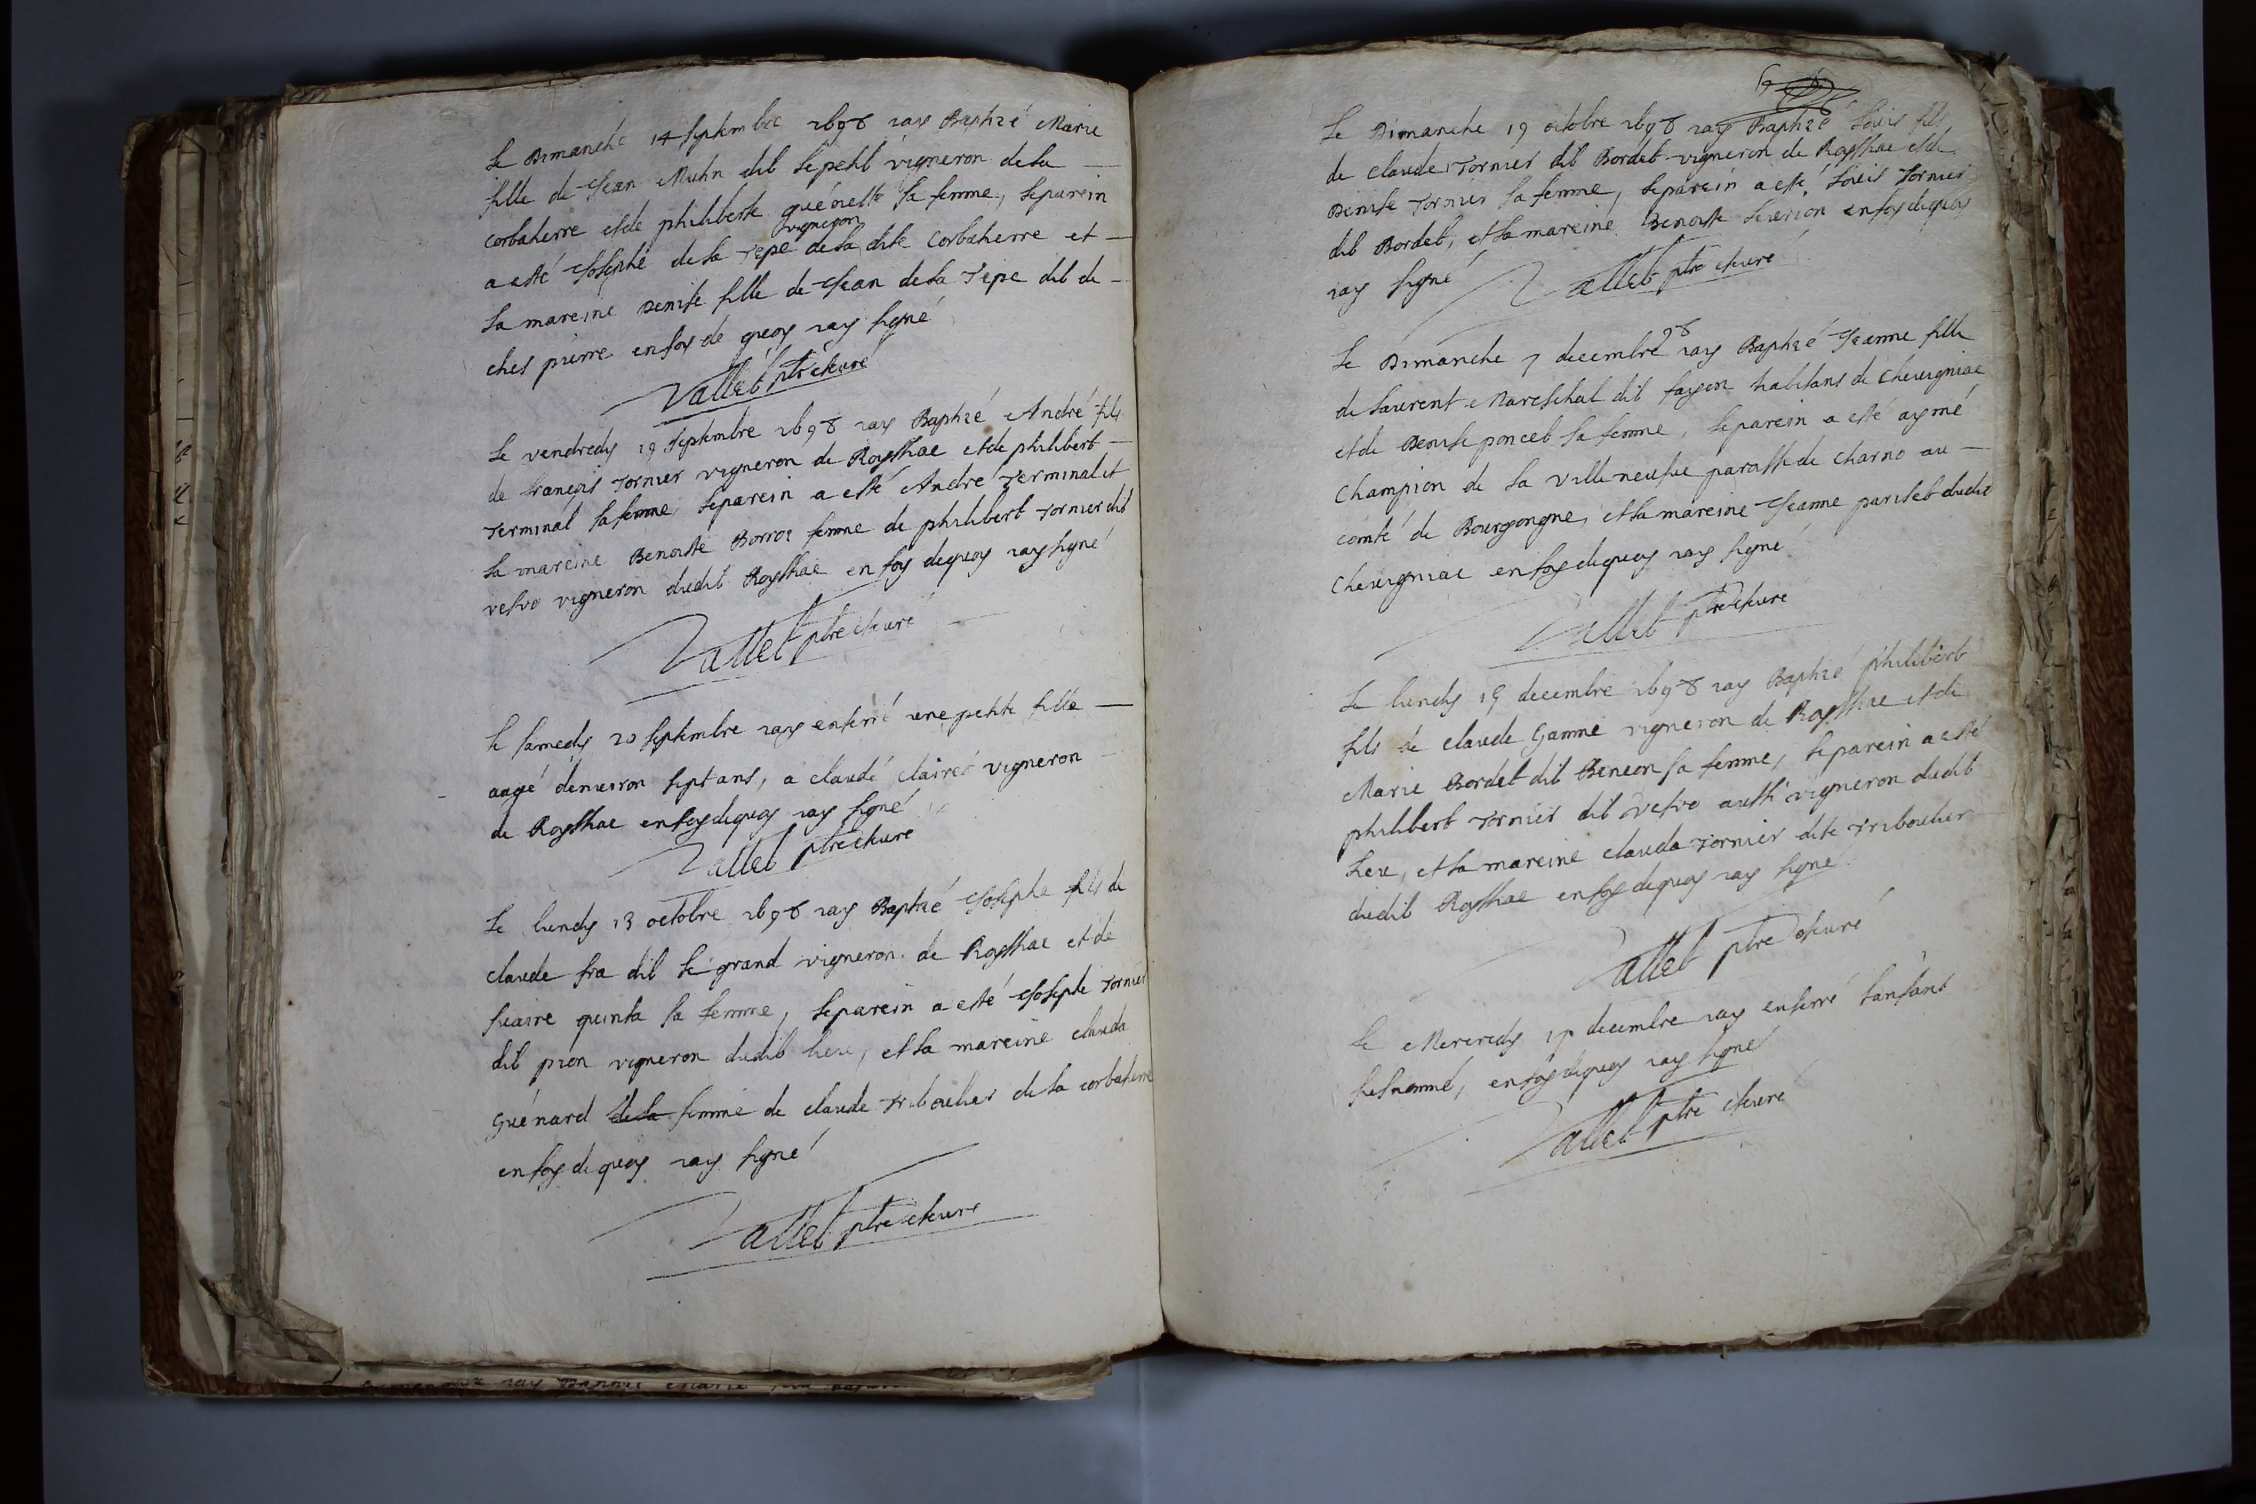 Le Dimanche 14 septembre 1698 iay Baptizé Marie
fille de Jean Muhn dit le petit vigneron de la
corbaterre et de philiberte guénette sa femme, le parein
vigneron
a esté Josephe de la Tepe de la dite Corbaterre et
la mareine Denise fille de Jean de la Tepe dit de
ches pierre en foy de quoy iay signé
Vallet ptre cure
Le vendredy 19 septembre 1698 iay Baptizé André fils
de françois Tornier vigneron de Roysshac et de philibert
Terminal sa femme, le parein a esté André Terminal et
la mareine Benoiste Borros femme de philibert Tornier dit
vesvo vigneron dudit Roysshac en foy de quoy iay signé
Vallet ptre cure
le samedy 20 septembre iay enterré une petite fille
aagé denviron sept ans, a claude claires vigneron
de Roysshac en foy de quoy iay signé
Vallet ptre cure
Le lundy 13 octobre 1698 iay Baptizé Josephe fils de
claude fra dit le grand vigneron de Roysshac et de
suaire quinta sa femme, le parein a esté Josephe Tornier
dit pion vigneron dudit lieu, et la mareine clauda
Guénard de la femme de claude Triboulier de la corbaterre
en foy de quoy iay signé
Vallet ptre cure
Le Dimanche 19 octobre 1698 iay Baptizé Louis fils
de claude Tornier dit Bordet vigneron de Roysshac et de
Denise Tornier sa femme, le parein a esté Louis Tornier
dit Bordet, et la mareine Benoiste en foy de quoy
iay signé
Vallet ptre cure
98
Le Dimanche 7 decembre iay Baptizé Jeanne fille
de Laurent Mareschal dit fayon habitans de cheurgniac
et de Denise poncet sa femme, le parein a esté aymé
Champion de la ville neufue paroisse de charno au
comté de Bourgongne, et la mareine Jeanne pariset dudit
cheurgniac en foy de quoy iay signé
Vallet ptre cure
Le lundy 15 decembre 1698 iay Baptizé philibert
fils de claude Gamme vigneron de Roysshac et de
Marie Bordet dit Beneon sa femme, le parein a esté
philibert Tornier dit vesvo aussi vigneron dudit
lieu, et la mareine clauda Tornier dite Triboulier
dudit Roysshac en foy de quoy iay signé
Vallet ptre cure
Le Mercredy 17 decembre iay enterré lanfant
susnommé, en foy de quoy iay signé
Vallet ptre cure